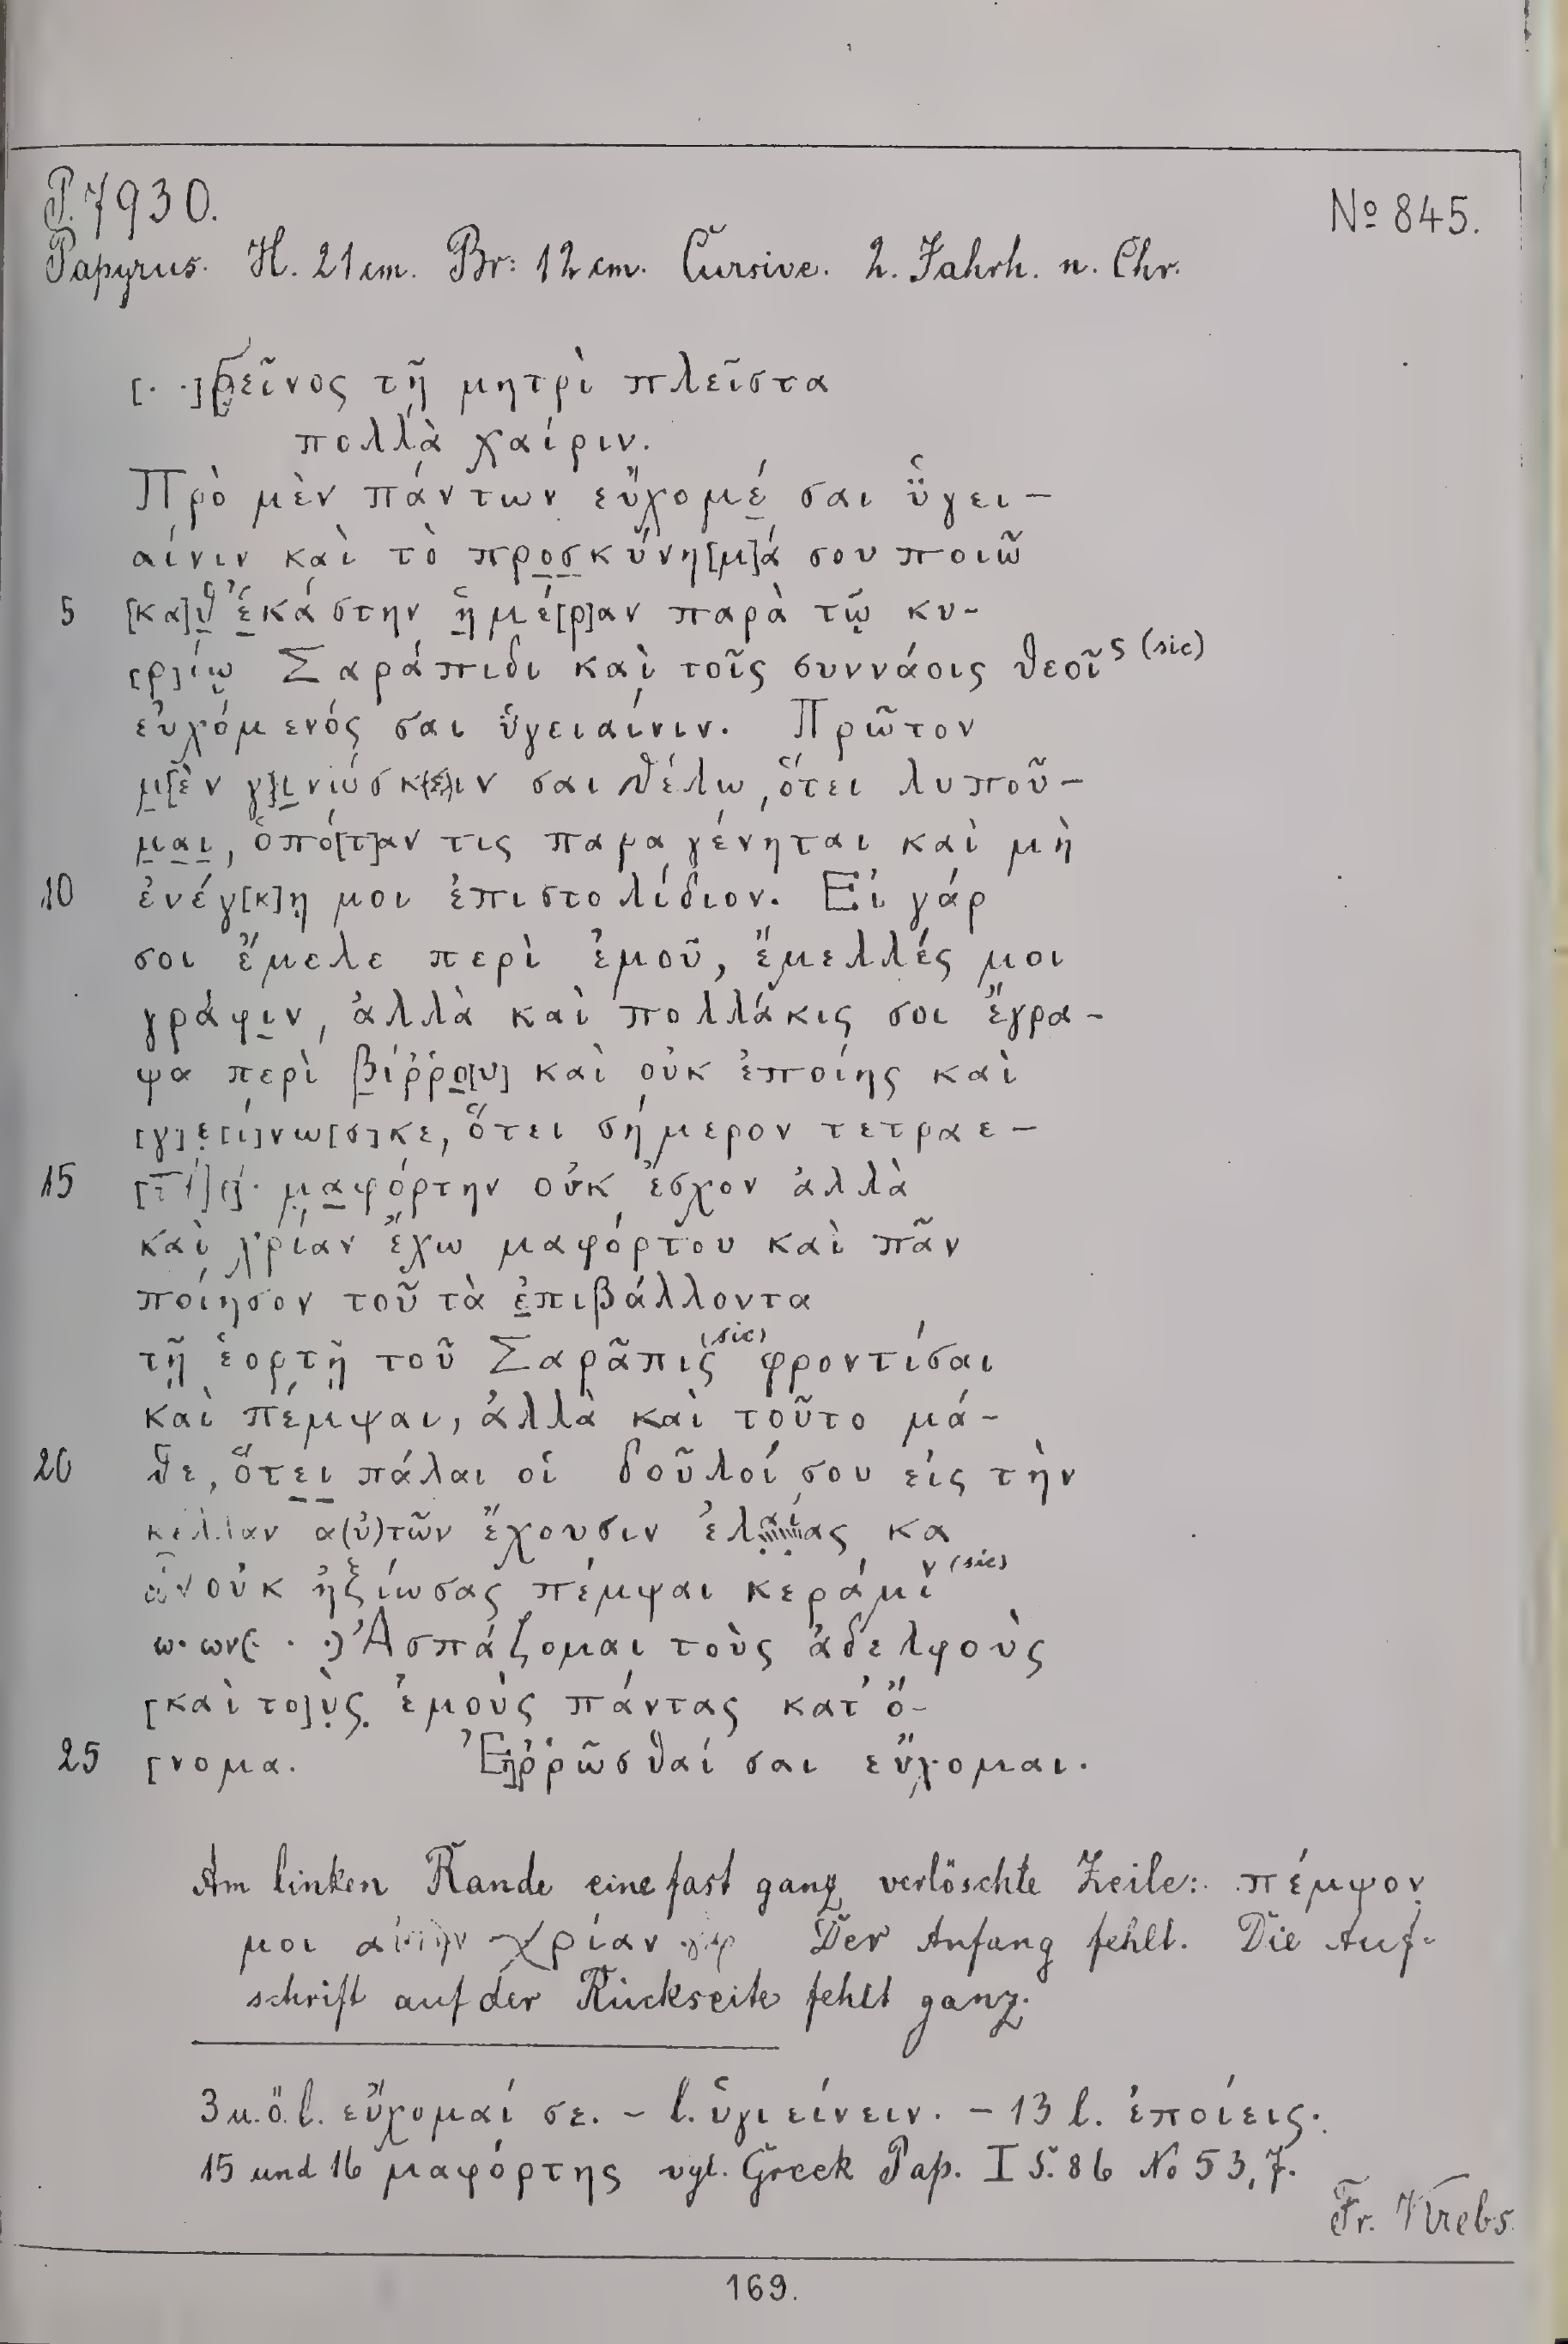 P. 7930.
№ 845.
Papyrus. H. 21 cm. Br: 12 cm. Cursive. 2. Jahrh. n. Chr.
[. .]ρεῖνος τῇ μητρὶ πλεῖστα
πολλὰ χαίριν.
Πρὸ μὲν πάντων εὔχομέ σαι ὑγει-
αίνιν καὶ τὸ προσκύνη[μ]ά σου ποιῶ
5 [κα]θ' ἑκάστην ἡμέ[ρ]αν παρὰ τῷ κυ-
[ρ]ίῳ Σαράπιδι καὶ τοῖς συννάοις θεοῖς (sic)
εὐχόμενός σαι ὑγειαίνιν. Πρῶτον
μ[ὲν γ]ινώσκ(ε)ιν σαι θέλω, ὅτει λυποῦ-
μαι, ὁπό[τ]αν τις παραγένηται καὶ μὴ
10 ἐνέγ[κ]ῃ μοι ἐπιστολίδιον. Εἰ γάρ
σοι ἔμελε περὶ ἐμοῦ, ἔμελλές μοι
γράφιν, ἀλλὰ καὶ πολλάκις σοι ἔγρα-
ψα περὶ βίρρο[υ] καὶ οὐκ ἐποίης καὶ
[γ]ε[ί]νω[σ]κε, ὅτει σήμερον τετραε-
15 μαφόρτην οὐκ ἔσχον ἀλλὰ
καὶ χρίαν ἔχω μαφόρτου καὶ πᾶν
ποίησον τοῦ τὰ ἐπιβάλλοντα
τῇ ἑορτῇ τοῦ Σαρᾶπις (sic) φροντίσαι
καὶ πέμψαι, ἀλλὰ καὶ τοῦτο μά-
20 θε, ὅτει πάλαι οἱ δοῦλοί σου εἰς τὴν
κέλλαν α(ὐ)τῶν ἔχουσιν ἐλαίας κα
ὧν οὐκ ἠξίωσας πέμψαι κεράμιν (sic)
ω. ων(. . .) Ἀσπάζομαι τοὺς ἀδελφοὺς
[καὶ το]ὺς ἐμοὺς πάντας κατ' ὄ-
25 [νομα. Ἐρρῶσθαί σαι εὔχομαι.
Am linken Rande eine fast ganz verlöschte Zeile: πέμψον
μοι χρίαν Der Anfang fehlt. Die Auf-
schrift auf der Rückseite fehlt ganz.
3 u. ö. l. εὔχομαί σε. - l. ὑγιείνειν. - 13 l. ἐποίεις.
15 und 16 μαφόρτης vgl. Greek Pap. I S. 86 No 53, 7.
Fr. Krebs.
169.